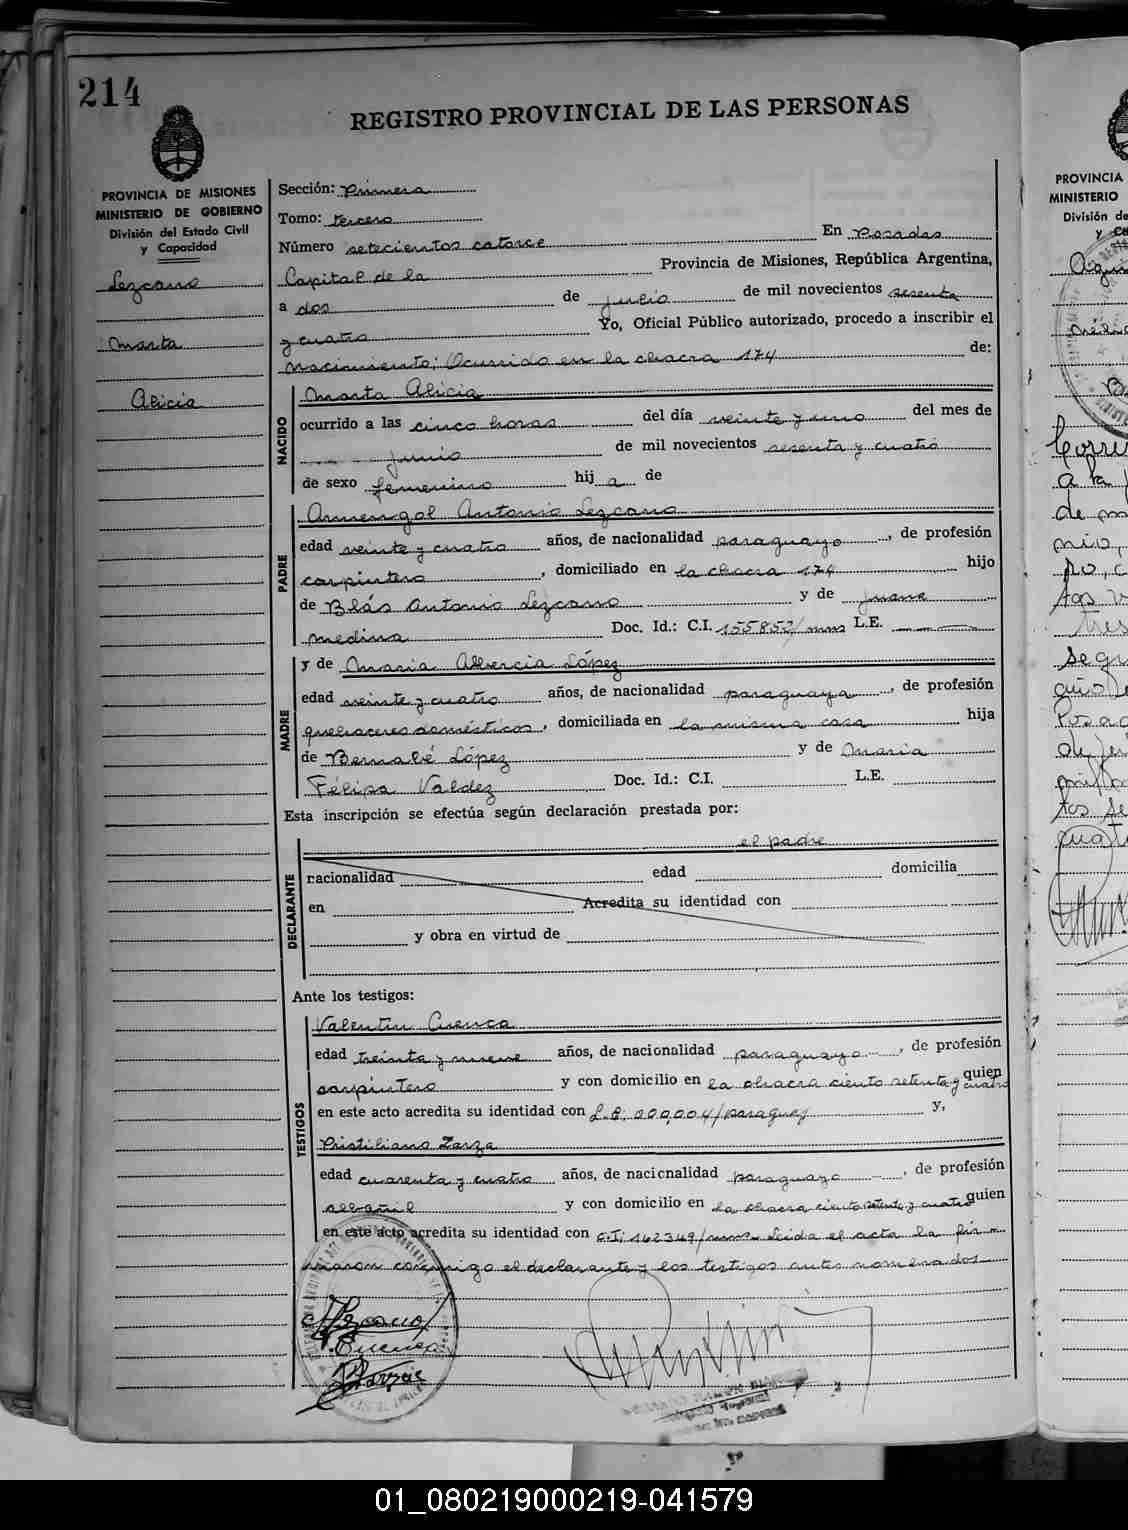 214
REGISTRO PROVINCIAL DE LAS PERSONAS
PROVINCIA DE MISIONES
MINISTERIO DE GOBIERNO
División del Estado Civil
y Capacidad
Lezcano
Marta
Alicia
Sección: Primera
Tomo: tercero
Número setecientos catorce En Posadas
Capital de la Provincia de Misiones, República Argentina,
a dos de julio de mil novecientos sesenta
y cuatro Yo, Oficial Público autorizado, procedo a inscribir el
nacimiento: Ocurrido en la chacra 174 de:
NACIDO
Marta Alicia
ocurrido a las cinco horas del día veinte y uno del mes de
junio de mil novecientos sesenta y cuatro
de sexo femenino hij a de
PADRE
Armengol Antonio Lezcano
edad veinte y cuatro años, de nacionalidad paraguayo, de profesión
carpintero, domiciliado en la chacra 174 hijo
de Blás Antonio Lezcano y de Juana
Medina Doc. Id.: C.I. 155852/mnes L.E.
MADRE
y de Maria Lópéz
edad veinte y cuatro años, de nacionalidad paraguaya, de profesión
quehaceres domésticos, domiciliada en la misma casa hija
de Bernabé López y de Maria
Félipa Valdez Doc. Id.: C.I. L.E.
Esta inscripción se efectúa según declaración prestada por:
el padre
DECLARANTE
nacionalidad edad domicilia
en Acredita su identidad con
y obra en virtud de
Ante los testigos:
TESTIGOS
Valentin Cuenca
edad treinta y nueve años, de nacionalidad paraguayo, de profesión
carpintero y con domicilio en la chacra ciento setenta y cuatro quien
en este acto acredita su identidad con L.B: 000,004/paraguay y,
Pristiliano Zarza
edad cuarenta y cuatro años, de nacicnalidad paraguayo, de profesión
albañil y con domicilio en la chacra ciento setenta y cuatro quien
en este acto acredita su identidad con C.I: 162349/mnes. Leida el acta la fir-
maron conmigo el declarante y los testigos antes nombrados
Lezcano
V. Cuenca
Zarza
PROVINCIA
MINISTERIO
División de
01_080219000219-041579